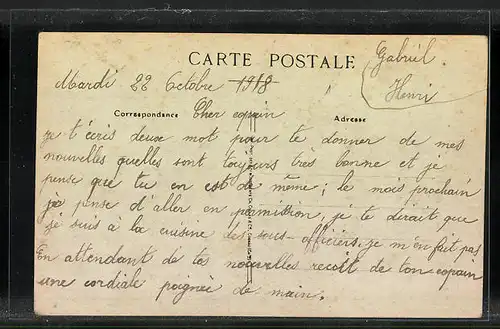 CARTE POSTALE
Gabriel.
Mardi 22 Octobre 1918
Henri
Correspondance
Cher copain
Adresse
je t'écris deux mot pour te donner de mes
nouvelles quelles sont toujours très bonne et je
pense que tu en est de même ; le mois prochain
je pense d'aller en permission, je te dirait que
je suis à la cuisine des sous-officiers je m'en fait pas
En attendant de tes nouvelles recoit de ton copain
une cordiale poignée de main.